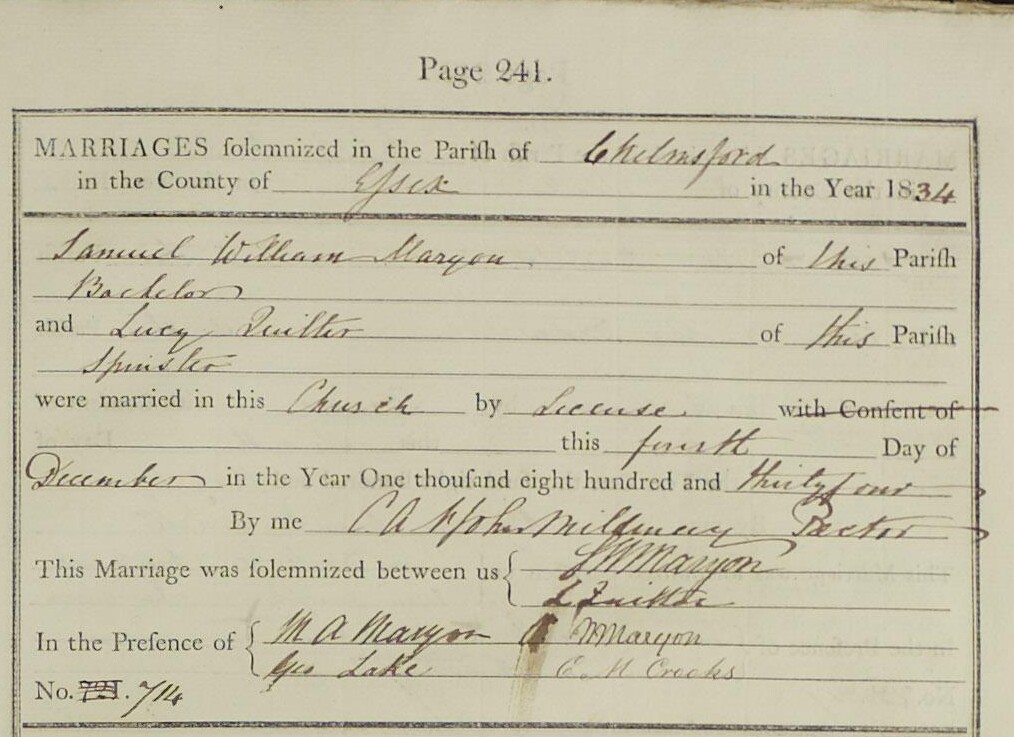 Page 241.
MARRIAGES ſolemnized in the Pariſh of Chelmsford
in the County of Eſsex in the Year 1834
Samuel William Maryon of this Pariſh
Bachelor
and Lucy Quilter of this Pariſh
Spinster
were married in this Church by License with Conſent of
this fourth Day of
December in the Year One thouſand eight hundred and thirty four
By me C A St John Mildmay Rector
This Marriage was ſolemnized between us S W Maryon
L Quilter
In the Preſence of M A Maryon W Maryon
Geo Lake C M Crooks
No. 721. 714